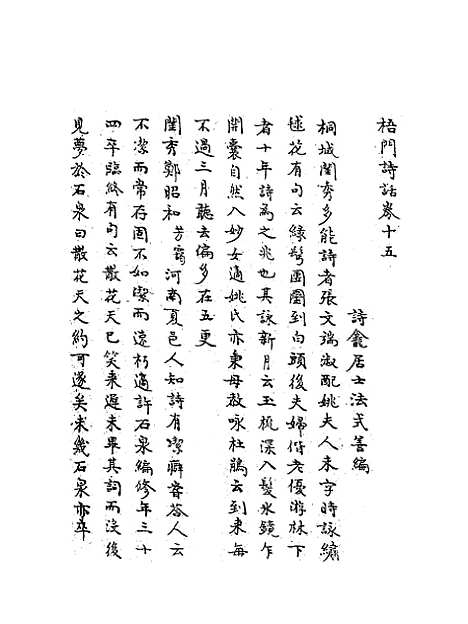 梧門詩話卷十五
詩龕居士法式善編
桐城閨秀多能詩者張文端淑配姚夫人未字時詠繡
毬花有句云綠鬢團圞到白頭後夫婦偕老優游林下
者十年詩爲之兆也其詠新月云玉梳深入髮氷鏡乍
開囊自然入妙女適姚氏亦秉母教咏杜鵑云到來每
不過三月聽去偏多在五更
閨秀鄭昭和芳窩河南夏邑人知詩有潔癖嘗答人云
不潔而常存固不如潔而速朽適許石泉編修年三十
四卒臨終有句云散花天已笑來遲未畢其詞而沒後
見夢於石泉曰散花天之約可遂矣未幾石泉亦卒